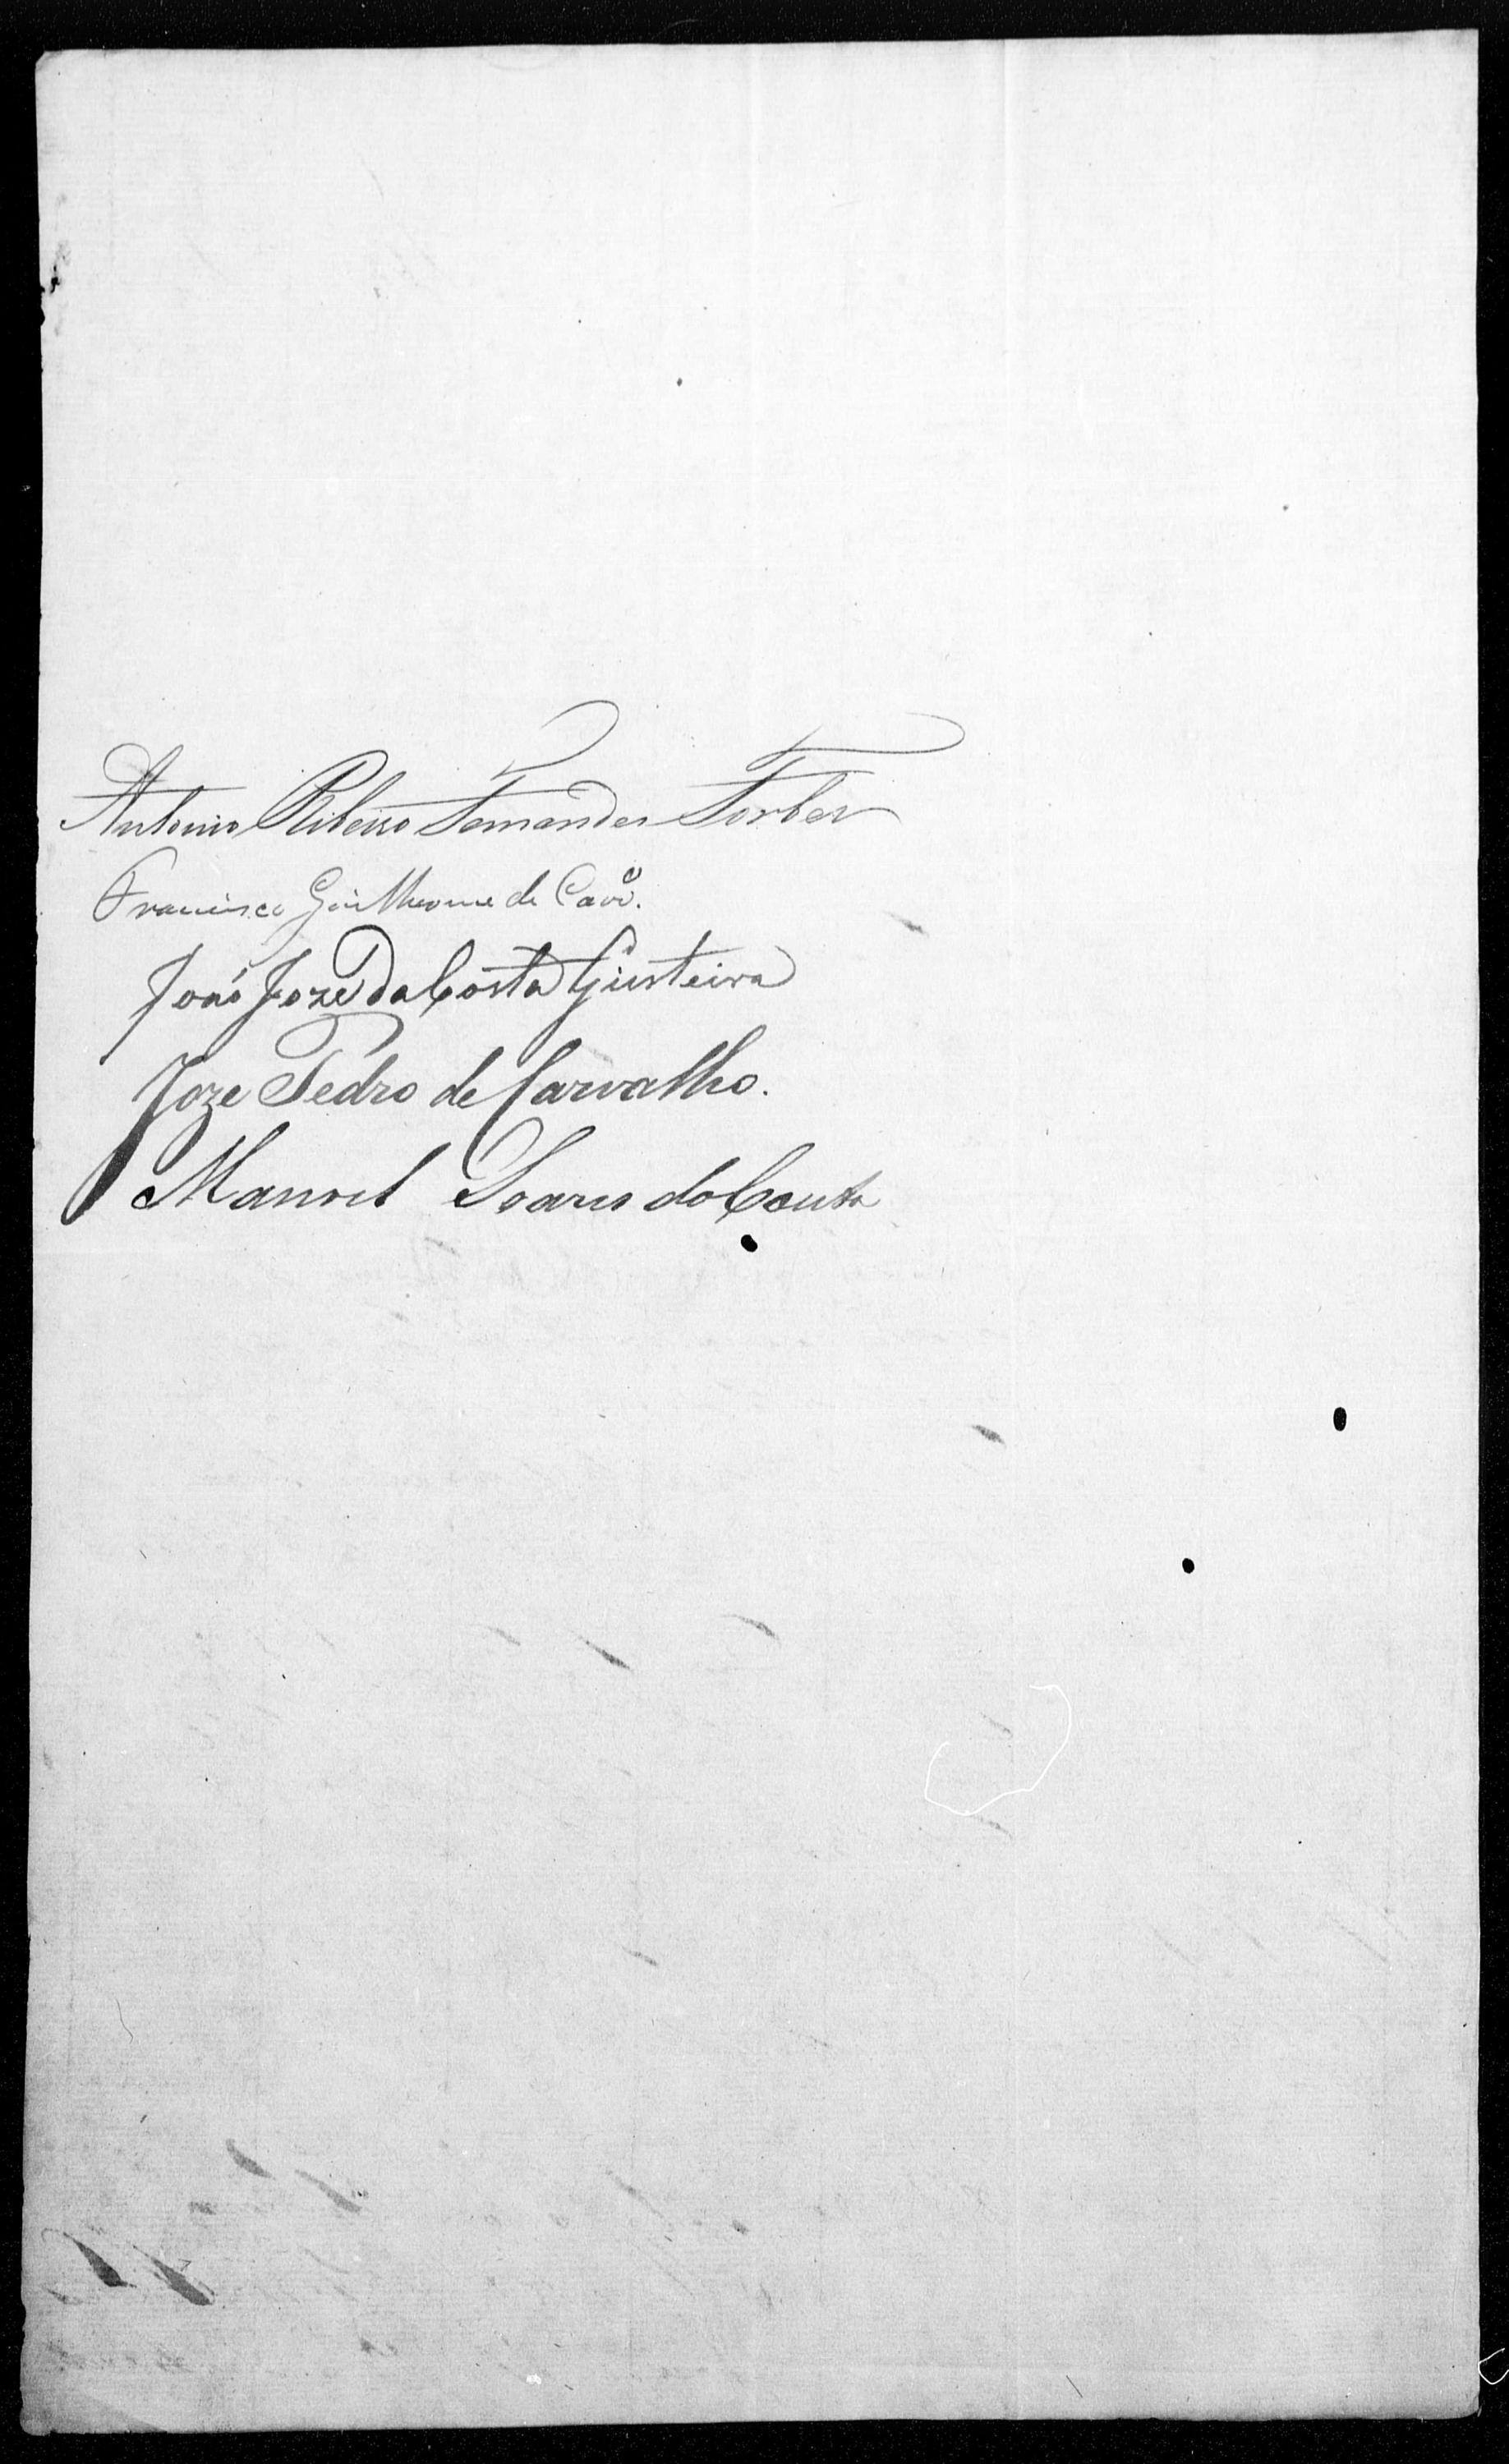 Antonio Ribeiro Fernandes Forbes
Francisco Guilherme de Carº.
João Joze da Costa Gusteira
Joze Pedro de Carvalho.
Manoel Soares do Couto